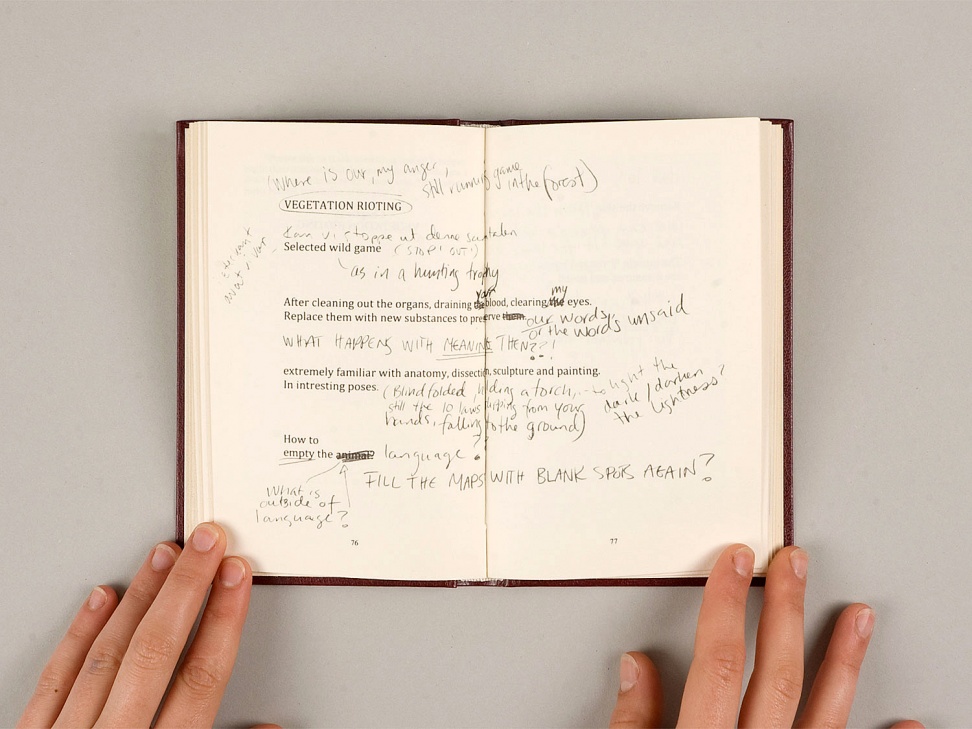 (where is our, my anger,
still running game
in the forest)
VEGETATION RIOTING
kan vi stoppa ut denne samtalen
Selected wild game (STOP! OUT!)
as in a hunting trophy
your my
After cleaning out the organs, draining the blood, clearing the eyes.
Replace them with new substances to preserve them. our words,
or the words unsaid
WHAT HAPPENS WITH MEANING THEN??!
extremely familiar with anatomy, dissection, sculpture and painting.
In intresting poses. (Blindfolded, holding a torch, to light the
dark/darken
the lightness?
still the 10 laws from your
hands, falling to the ground)
How to
empty the animal? language?
FILL THE MAPS WITH BLANK SPOTS AGAIN?
What is
outside of
language?
76
77